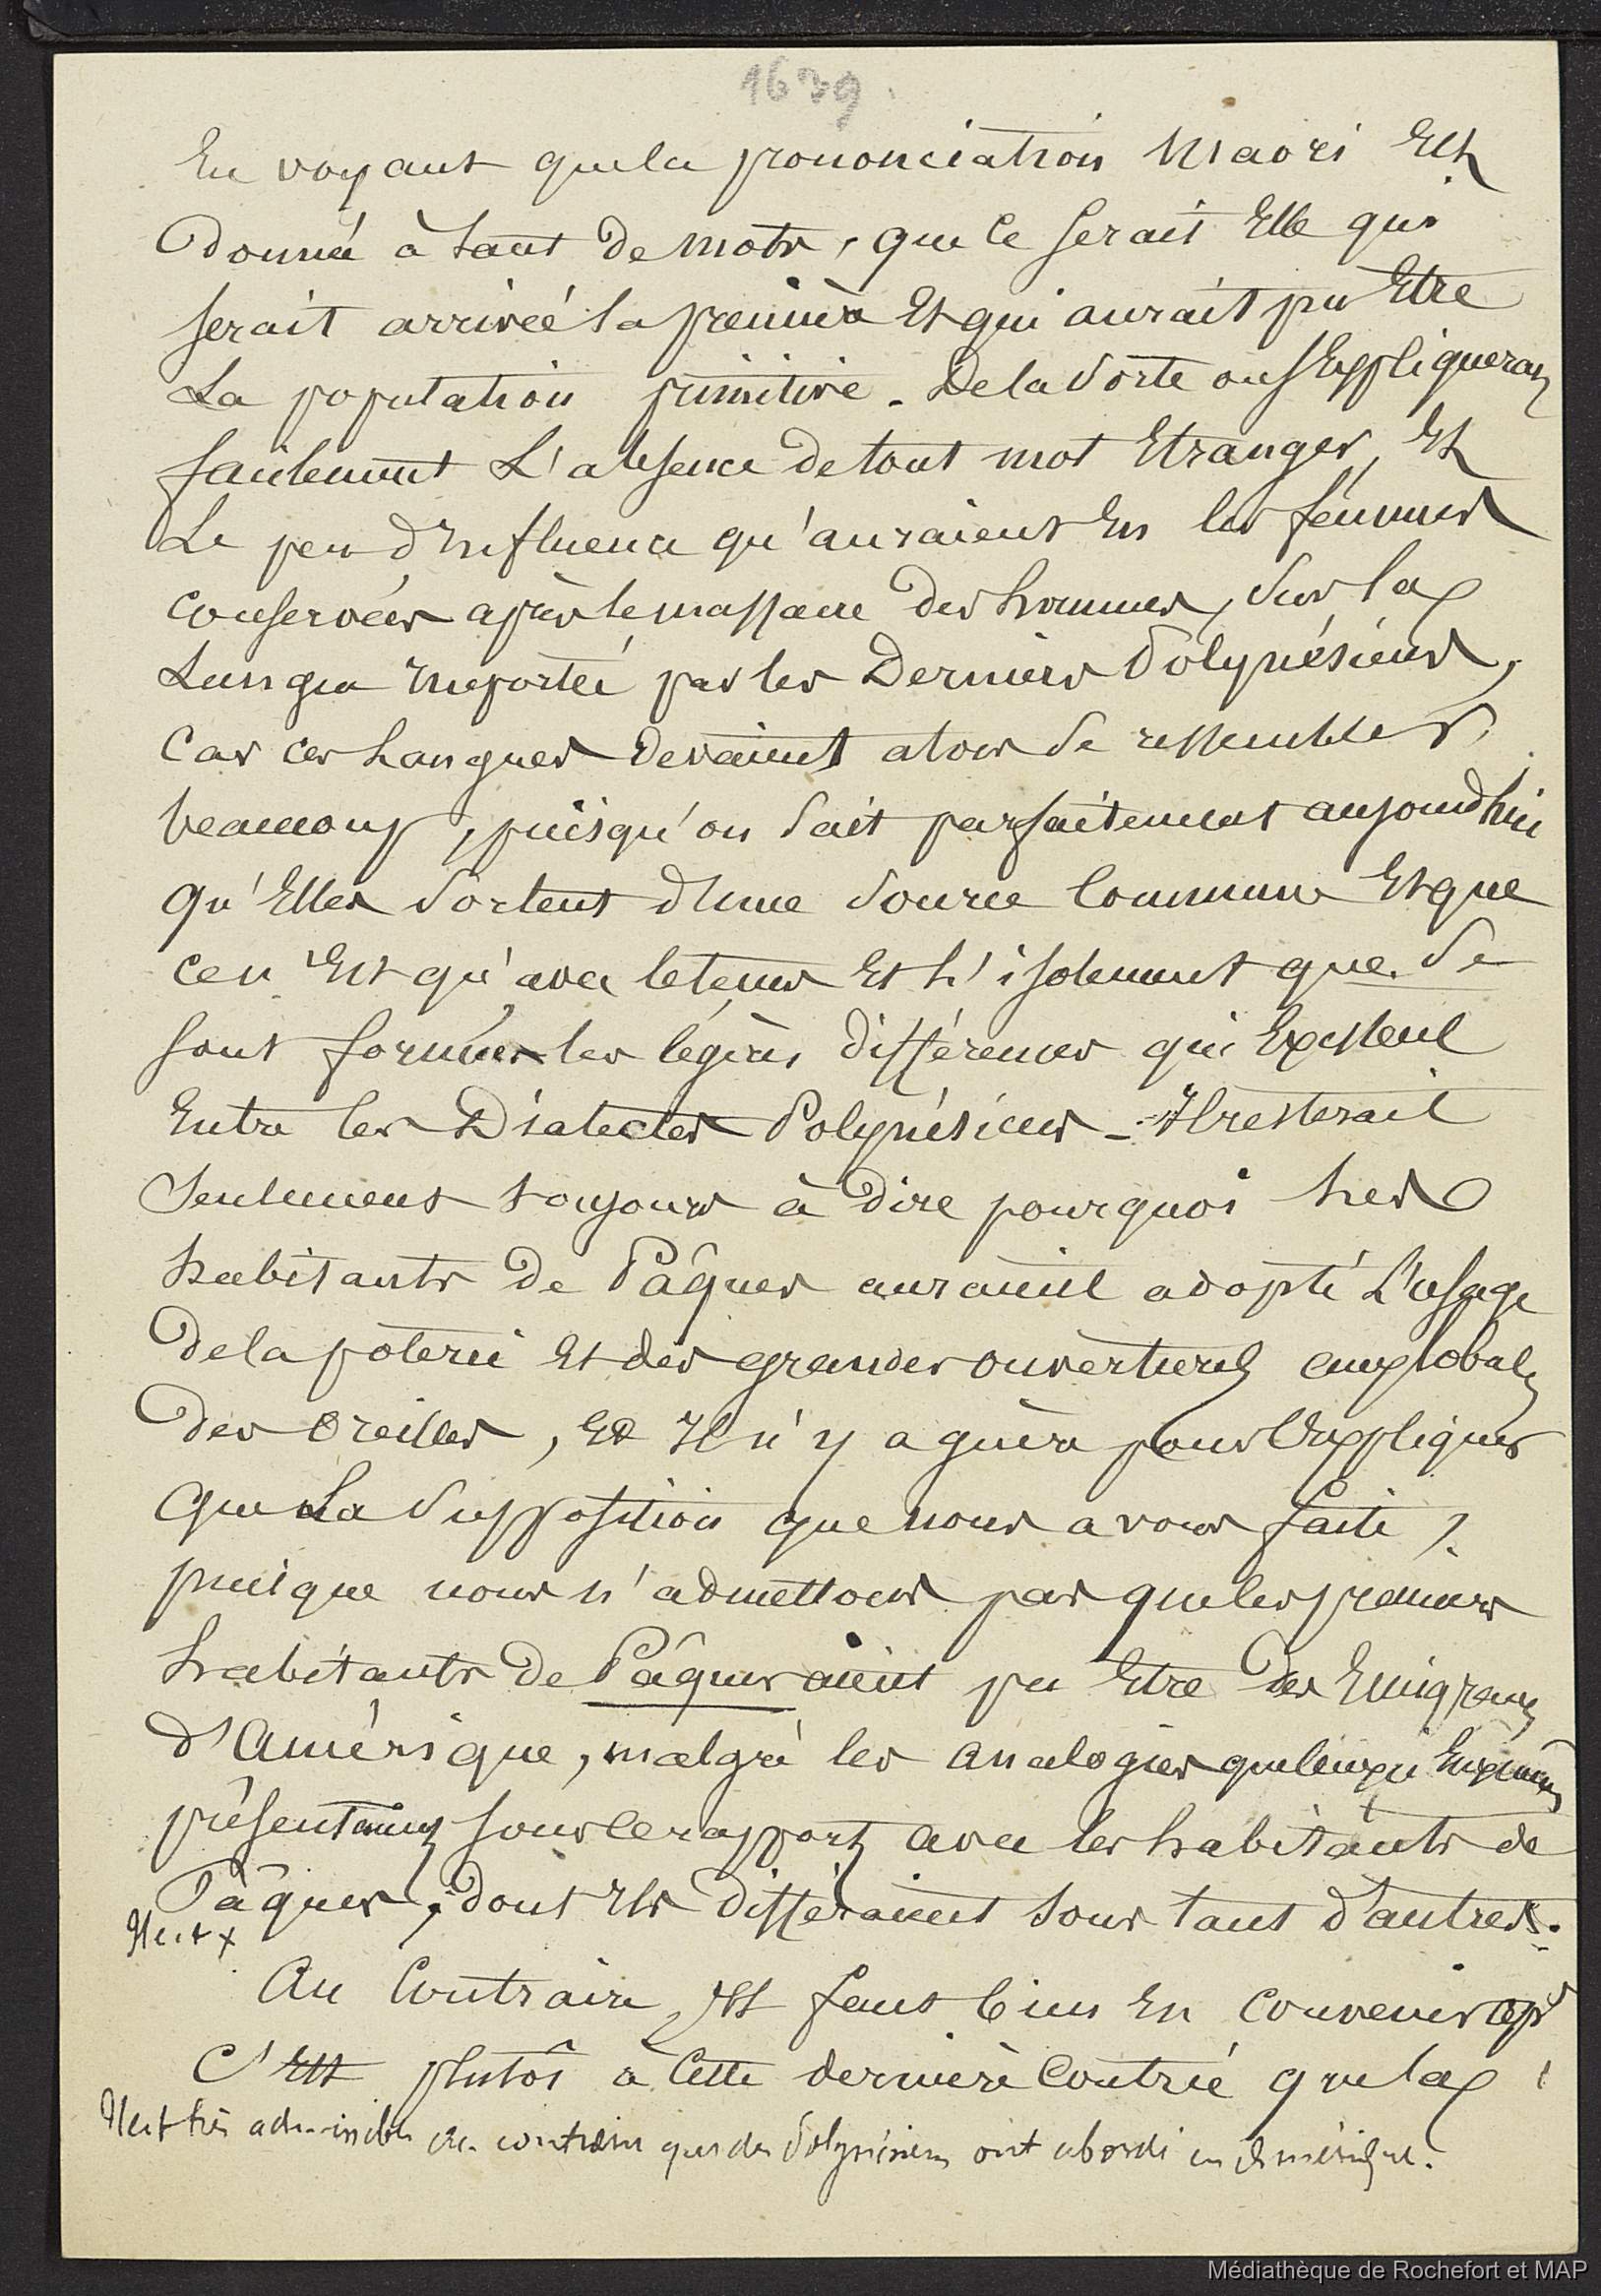 1639
En voyant que la prononciation Maori est
donnée à tant de mots, que ce serait elle qui
serait arrivée la première et qui aurait pu être
La population primitive. De la sorte on s'expliquerait
facilement l'absence de tout mot étranger, et
Le peu d'influence qu'auraient eu les femmes
conservées après le massacre des hommes, sur la
Langue importée par les derniers Polynésiens,
Car ces Langues devaient alors se ressembler
beaucoup, puisqu'on sait parfaitement aujourd'hui
qu'elles sortent d'une source commune et que
ce n'est qu'avec le temps et l'isolement que se
sont formées les légères différences qui existent
Entre les Dialectes Polynésiens - Il resterait
Seulement toujours à dire pourquoi les
habitants de Pâques auraient adopté l'usage
de la poterie et des grandes ouvertures aux lobules
des oreilles, et Il n'y a guère pour l'expliquer
que la supposition que nous avons faite,
puisque nous n'admettons pas que les premiers
habitants de Pâques aient pu être des Emigrants
d'Amérique, malgré les analogies que
présentaient sous ce rapport avec les habitants de
Pâques, dont ils différaient sous tant d'autres.
Il est x
Au Contraire, Il faut bien en convenir
C'est plutôt à cette dernière contrée que la
Il est très admissible au contraire que des Polynésiens ont abordé en Amérique.
Médiathèque de Rochefort et MAP